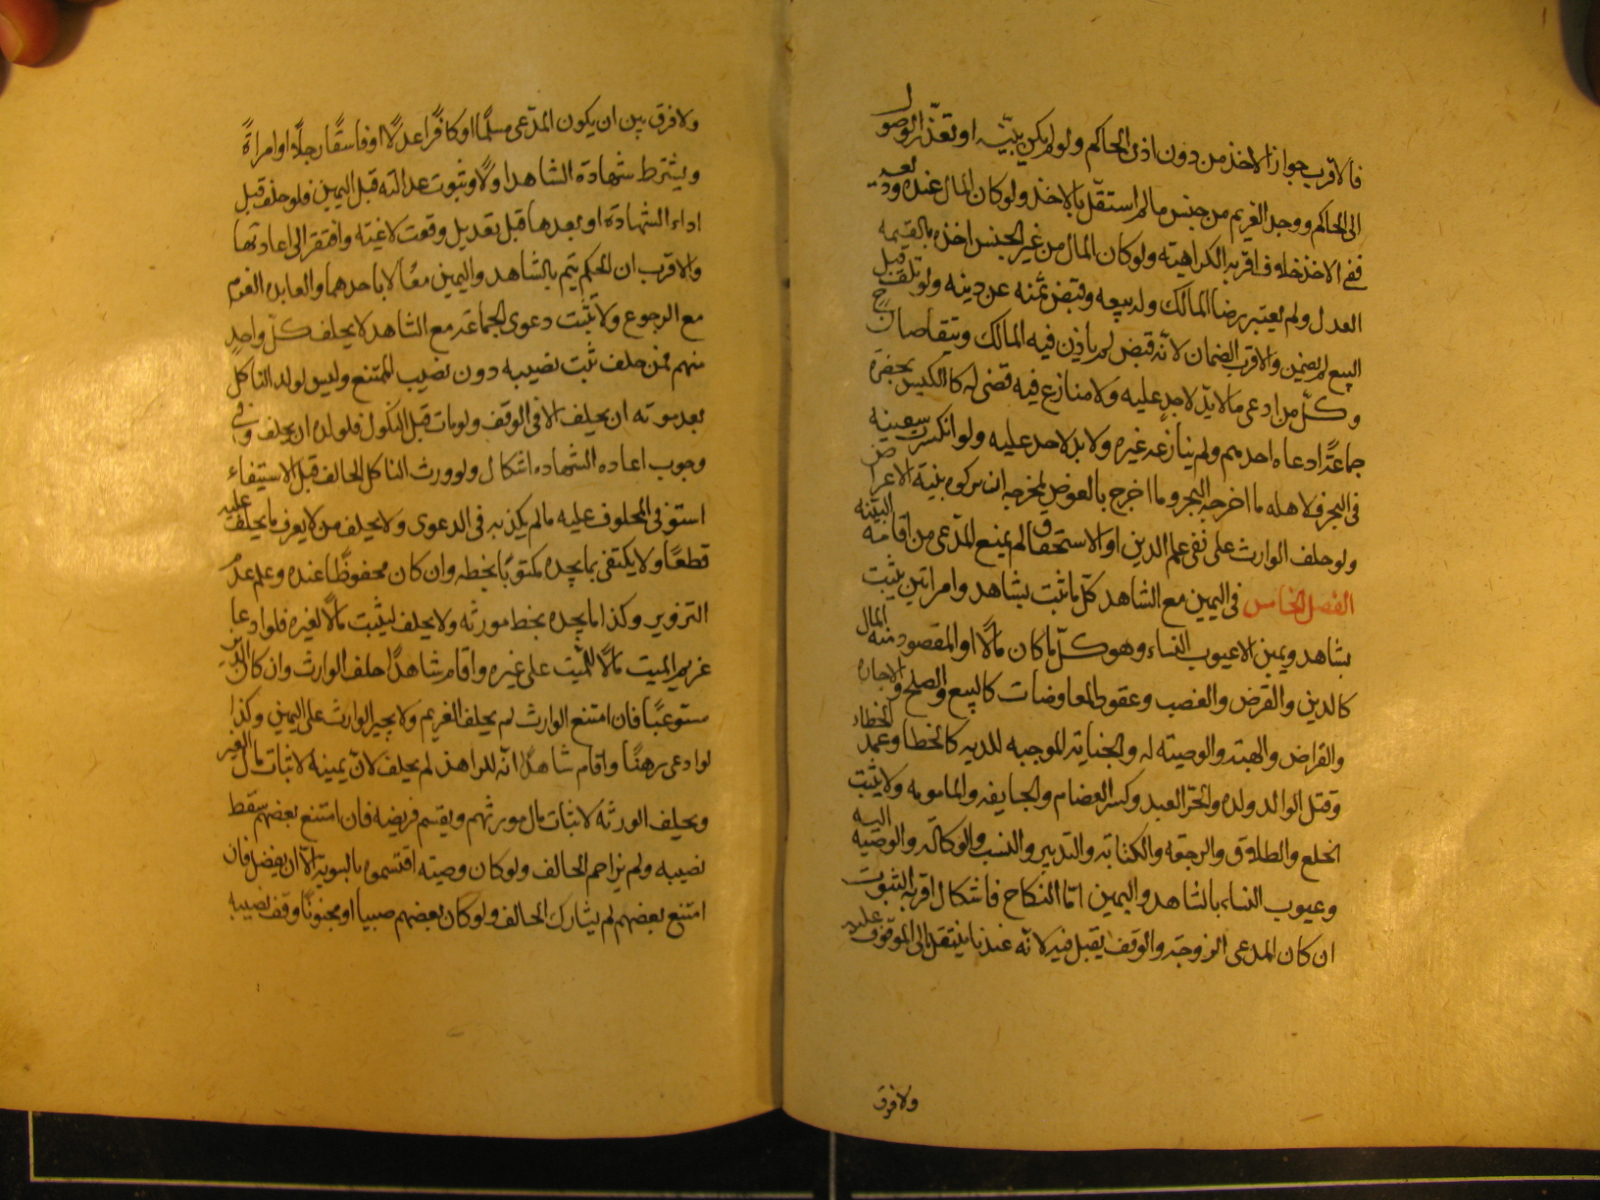 فالاقرب جواز الاخذ من دون اذن الحاكم ولو لم يكن بينه او تعذر الوصول
الى الحاكم ووجد الغريم من جنس ماله استقل بالاخذ ولو كان المال عنده وديعه
ففي الاخذ خلاف اقربه الكراهيته ولو كان المال من غير الجنس اخذه بالقيمه
العدل ولم يعتبر رضا المالك وله بيعه وقبض ثمنه عن دينه ولو تلف قبل
البيع لم يضمن والاقرب الضمان لانه قبض لم ياذن فيه المالك ويتقاصان ح
وكل من ادعى مالا يد لاحد عليه ولا منازع فيه قضى له كالكيس بحضرة
جماعة ادعاه احدهم ولم ينازعه غيره ولا يد لاحد عليه ولو انكسرت سفينه
في البحر فلاهله ما اخرجه البحر وما اخرج بالغوص لمخرجه ان تركوه بنية الاعراض
ولو حلف الوارث على نفي علم الدين او الاستحقاق لم يمنع المدعى من اقامة البينه
الفصل الخامس في اليمين مع الشاهد كل ما ثبت بشاهد وامراتين يثبت
بشاهد ويمين الا عيوب النساء وهو كل ما كان مالا او المقصود منه المال
كالدين والقرض والغصب وعقود المعاوضات كالبيع والصلح والاجاره
والقراض والهبته والوصيته له والجنايته الموجبه للديه كالخطا وعمد الخطاء
وقتل الوالد ولده والحر العبد وكسر العضام والجايفه والمامومه ولا يثبت
الخلع والطلاق والرجعه والكتابة والتدبير والنسب والوكالة والوصيه اليه
وعيوب النساء بالشاهد واليمين اما النكاح فاشكال اقربه الثبوت
ان كان المدعى الزوجة والوقف يقبل فيه لانه عندنا ينتقل الى الموقوف عليه
ولا فرق
ولا فرق بين ان يكون المدعى مسلما او كافرا عدلا او فاسقا رجلا او امراة
ويشترط شهادة الشاهد اولا وثبوت عدالته قبل اليمين فلو حلف قبل
اداء الشهادة او بعدها قبل تعديل وقعت لاغيته وافتقر الى اعادتها
والاقرب ان الحكم يتم بالشاهد واليمين معا لا باحدهما والعايده الغرم
مع الرجوع ولا تثبت دعوى الجماعة مع الشاهد لا يحلف كل واحد
منهم فمن حلف ثبت نصيبه دون نصيب الممتنع وليس لولد الناكل
بعد موته ان يحلف الا في الوقف ولو مات قبل النكول فلولده ان يحلف وفي
وجوب اعاده الشهاده اشكال ولو ورث الناكل الحالف قبل الاستيفاء
استوفى المحلوف عليه مالم يكذبه في الدعوى ولا يحلف من لا يعرف ما يحلف عليه
قطعا ولا يكتفى بما يجده مكتوبا بخطه وان كان محفوظا عنده وعلم عدم
التزوير وكذا ما يجده بخط مورثه ولا يحلف ليثبت مالا لغيره فلو ادعا
غريم الميت مالا للميت على غيره واقام شاهدا حلف الوارث وان كان الدين
مستوعبا فان امتنع الوارث لم يحلف الغريم ولا يجبر الوارث على اليمين وكذا
لو ادعى رهنا واقام شاهدا انه للراهن لم يحلف لان يمينه لاثبات مال الغير
ويحلف الورثة لاثبات مال مورثهم ويقسم فريضه فان امتنع بعضهم سقط
نصيبه ولم يزاحم الحالف ولو كان وصيته اقتسموا بالسوية الا ان يفضل فان
امتنع بعضهم لم يشارك الحالف ولو كان بعضهم صبيا او مجنونا وقف نصيبه